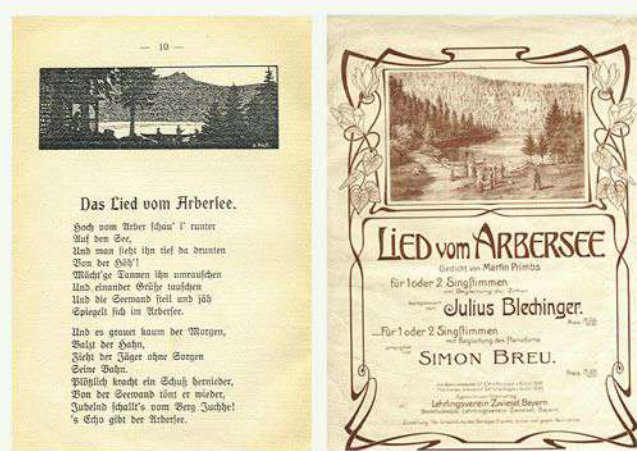 — 10 —
Das Lied vom Arbersee.
Hoch vom Arber schau' i' runter
Auf den See,
Und man sieht ihn tief da drunten
Von der Höh'!
Mächt'ge Tannen ihn umrauschen
Und einander Grüße tauschen
Und die Seewand steil und jäh
Spiegelt sich im Arbersee.
Und es grauet kaum der Morgen,
Balzt der Hahn,
Zieht der Jäger ohne Sorgen
Seine Bahn.
Plötzlich kracht ein Schuß hernieder,
Von der Seewand tönt er wieder,
Jubelnd schallt's vom Berg Juchhe!
's Echo gibt der Arbersee.
LIED vom ARBERSEE
Gedicht von Martin Primbs
Für 1 oder 2 Singstimmen
mit Begleitung der Zither
komponiert von Julius Blechinger.
Für 1 oder 2 Singstimmen
mit Begleitung des Pianoforte
SIMON BREU.
Lehrlingsverein Zwiesel, Bayern